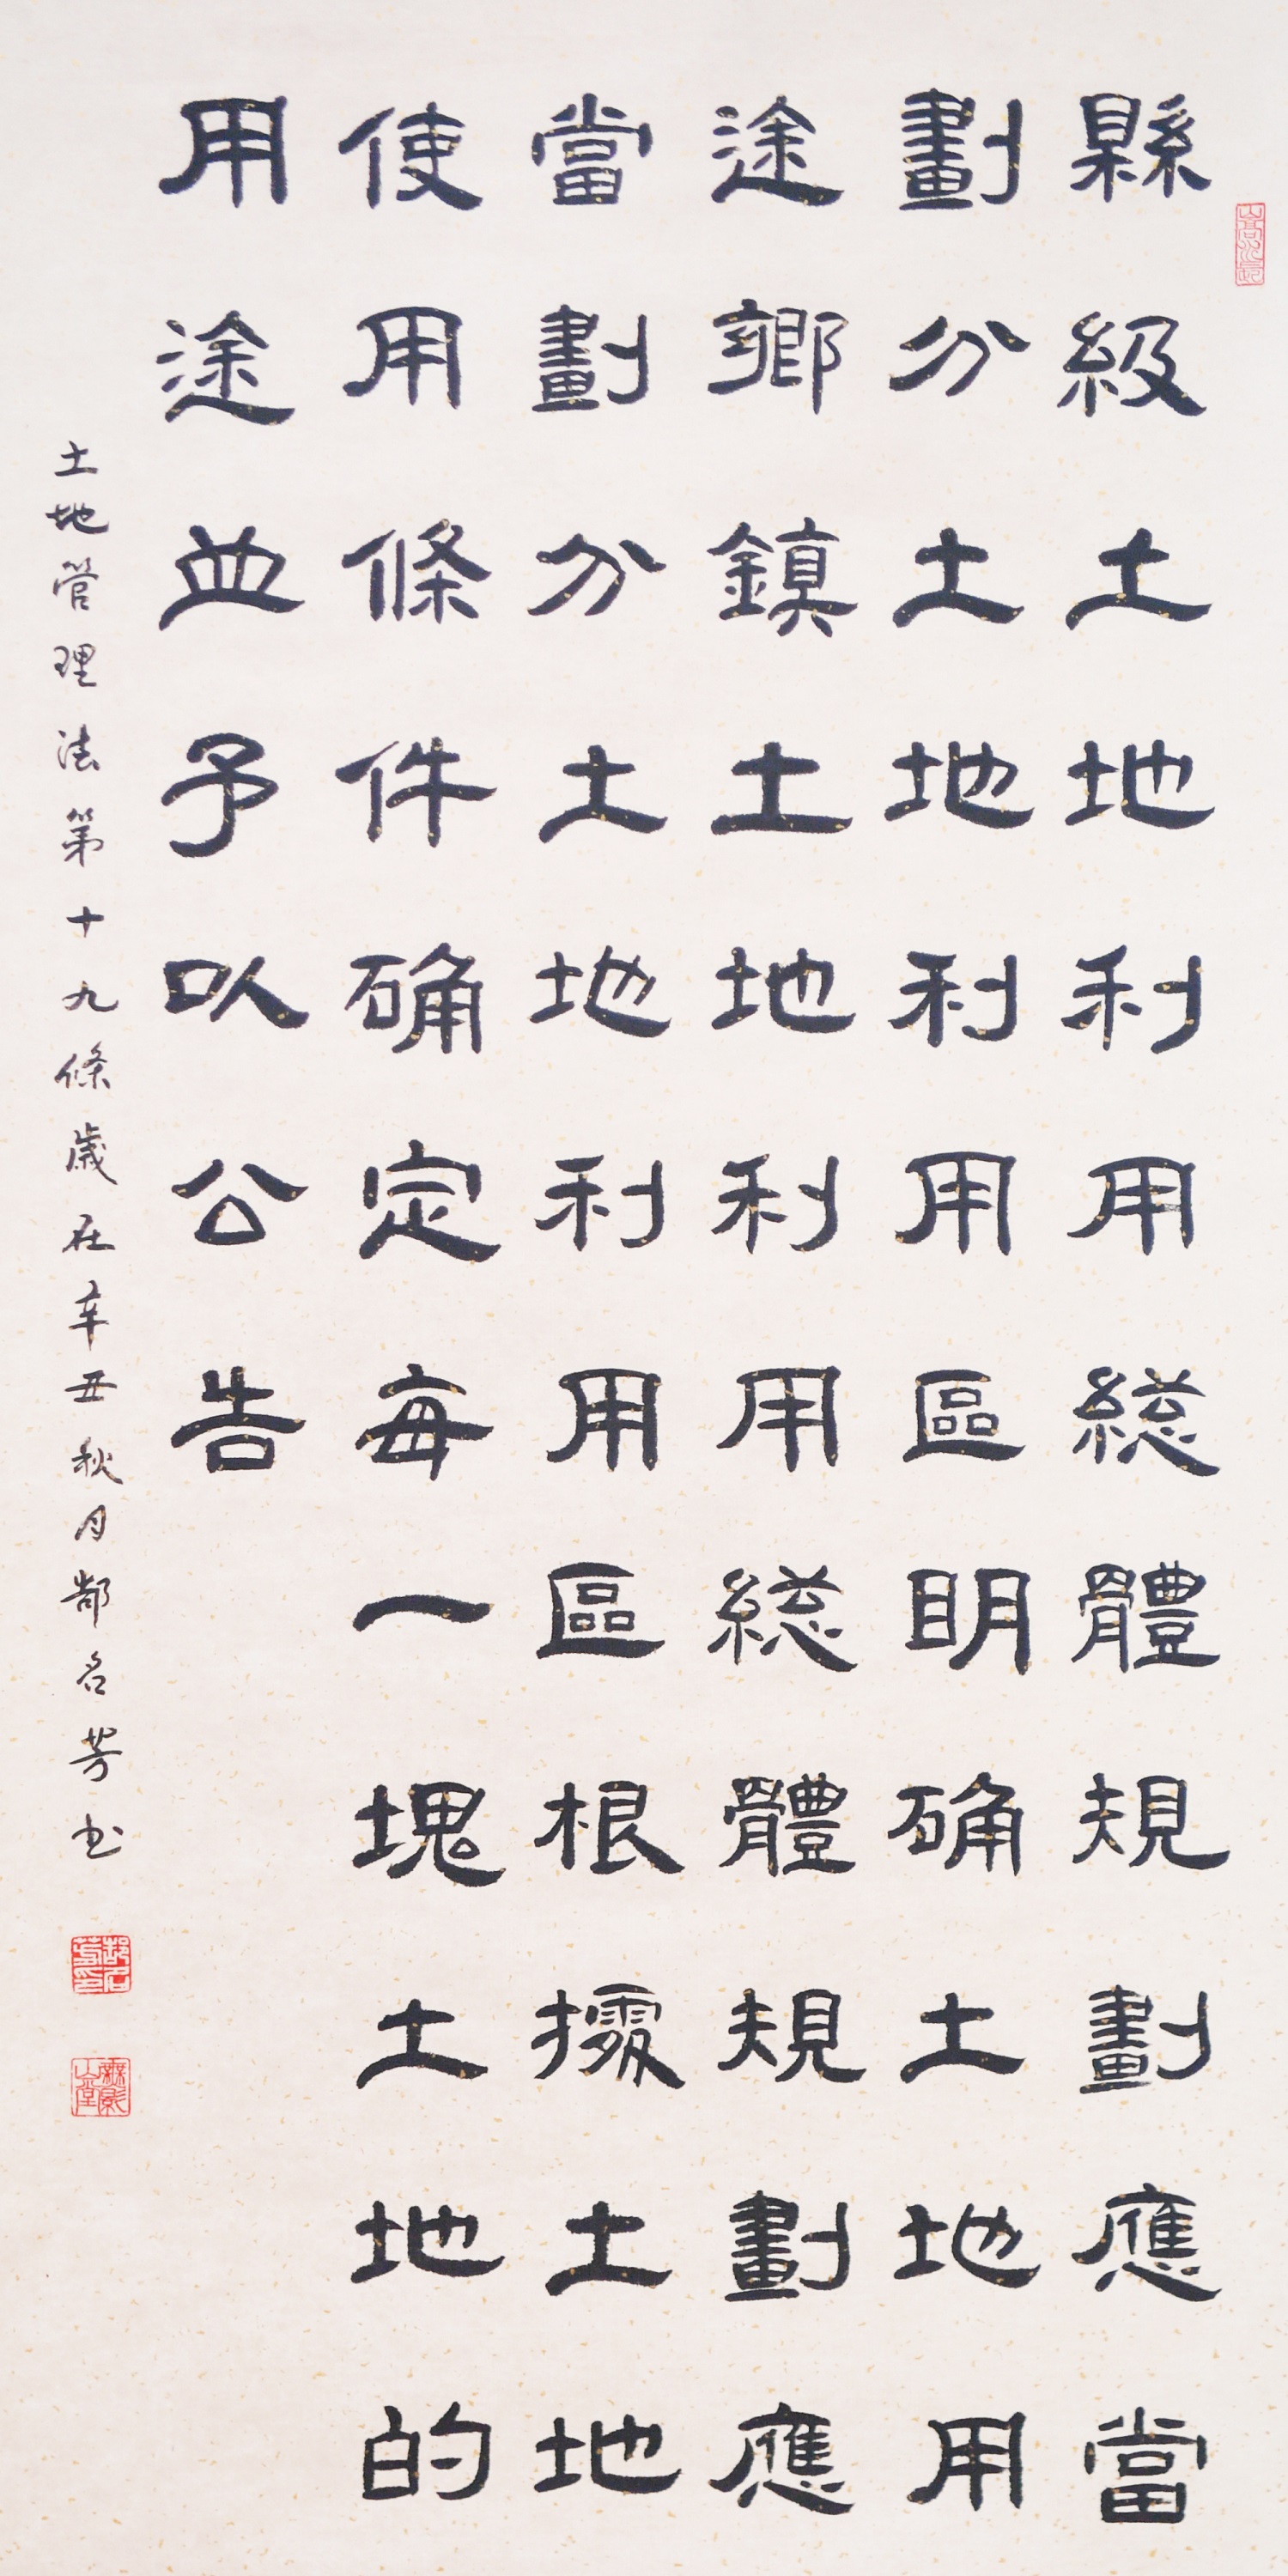 縣級土地利用総體規劃應當
劃分土地利用區明确土地用
途鄉鎮土地利用総體規劃應
當劃分土地利用區根據土地
使用條件确定每一塊土地的
用途並予以公告
土地管理法第十九條歲在辛丑秋月郜名芳书
山高水長
郜名芳印